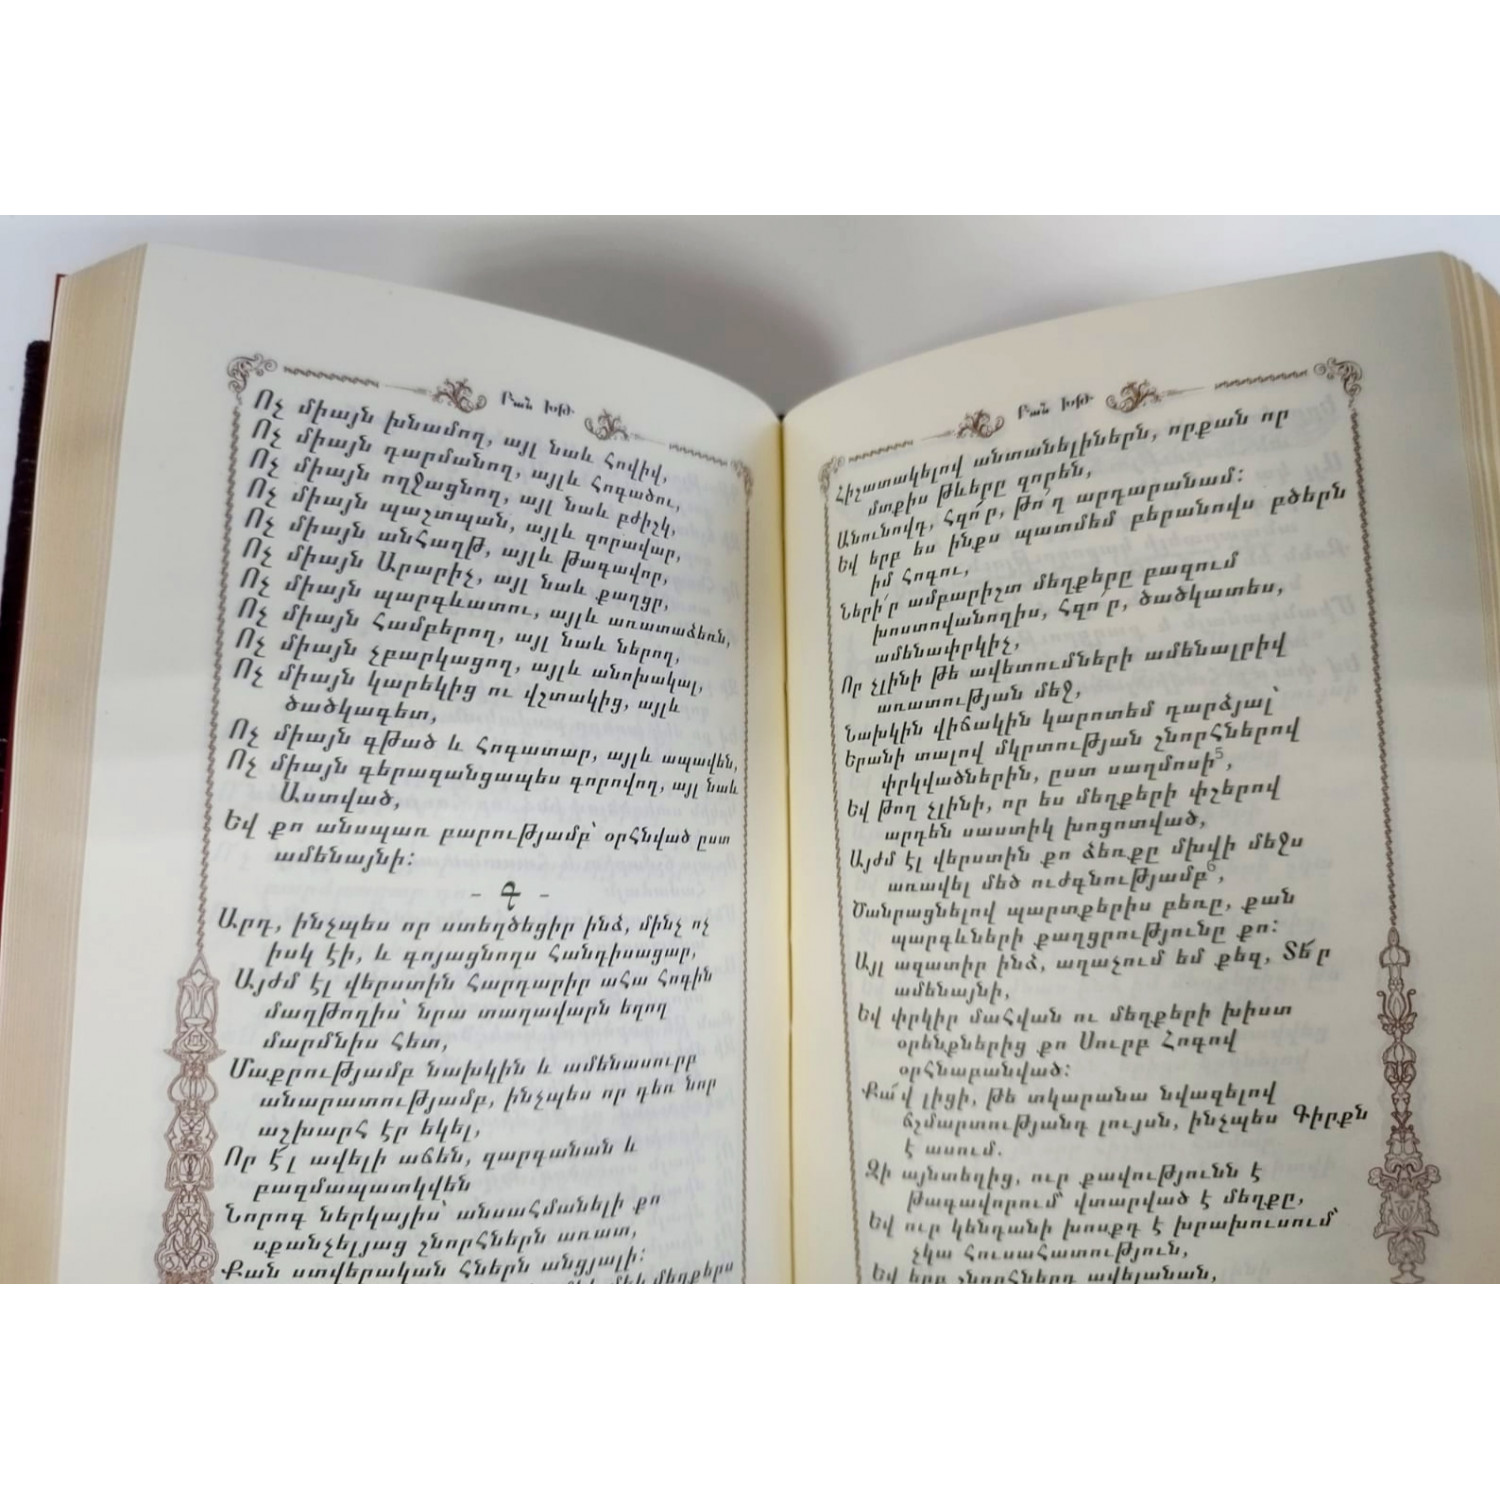 Բան ԽԹ
Ոչ միայն խնամող, այլ նաև հովիվ,
Ոչ միայն դարմանող, այլև հոգածու,
Ոչ միայն ողջացնող, այլ նաև բժիշկ,
Ոչ միայն պաշտպան, այլև զորավար,
Ոչ միայն անհաղթ, այլև թագավոր,
Ոչ միայն Արարիչ, այլ նաև քաղցր,
Ոչ միայն պարգևատու, այլև առատաձեռն,
Ոչ միայն համբերող, այլ նաև ներող,
Ոչ միայն չբարկացող, այլև անոխակալ,
Ոչ միայն կարեկից ու վշտակից, այլև
ծածկագետ,
Ոչ միայն գթած և հոգատար, այլև ապավեն,
Ոչ միայն գերազանցապես գորովող, այլ նաև
Աստված,
Եվ քո անսպառ բարությամբ՝ օրհնված ըստ
ամենայնի:
- Գ -
Արդ, ինչպես որ ստեղծեցիր ինձ, մինչ ոչ
իսկ էի, և գոյացնողս հանդիսացար,
Այժմ էլ վերստին հարդարիր ահա հոգին
մաղթողիս՝ նրա տաղավարն եղող
մարմնիս հետ,
Մաքրությամբ նախկին և ամենասուրբ
անարատությամբ, ինչպես որ դեռ նոր
աշխարհ էր եկել,
Որ է՛լ ավելի աճեն, զարգանան և
բազմապատկվեն
Նորոգ ներկայիս՝ անսահմանելի քո
սքանչելյաց շնորհներն առատ,
Քան ստվերական հներն անցյալի:
մեկ մեղքերս
Բան ԽԹ
Հիշատակելով անտանելիներն, որքան որ
մտքիս թևերը զորեն,
Անունովդ, հզո՛ր, թո՛ղ արդարանամ:
Եվ երբ ես ինքս պատմեմ բերանովս բծերն
իմ հոգու,
Ների՛ր ամբարիշտ մեղքերը բազում
խոստովանողիս, հզո՛ր, ծածկատես,
ամենափրկիչ,
Որ չլինի թե ավետումների ամենալրիվ
առատության մեջ,
Նախկին վիճակին կարոտեմ դարձյալ՝
Երանի տալով մկրտության շնորհներով
փրկվածներին, ըստ սաղմոսի⁵,
Եվ թող չլինի, որ ես մեղքերի փշերով
արդեն սաստիկ խոցոտված,
Այժմ էլ վերստին քո ձեռքը մխվի մեջս
առավել մեծ ուժգնությամբ⁶,
Ծանրացնելով պարտքերիս բեռը, քան
պարգևների քաղցրությունը քո:
Այլ ազատիր ինձ, աղաչում եմ քեզ, Տե՛ր
ամենայնի,
Եվ փրկիր մահվան ու մեղքերի խիստ
օրենքներից քո Սուրբ Հոգով
օրհնաբանված:
Քա՜վ լիցի, թե տկարանա նվազելով
ճշմարտությանդ լույսն, ինչպես Գիրքն
է ասում.
Զի այնտեղից, ուր քավությունն է
թագավորում՝ վտարված է մեղքը,
Եվ ուր կենդանի խոսքդ է խրախուսում՝
չկա հուսահատություն,
Եվ երբ շնորհներդ ավելանան,